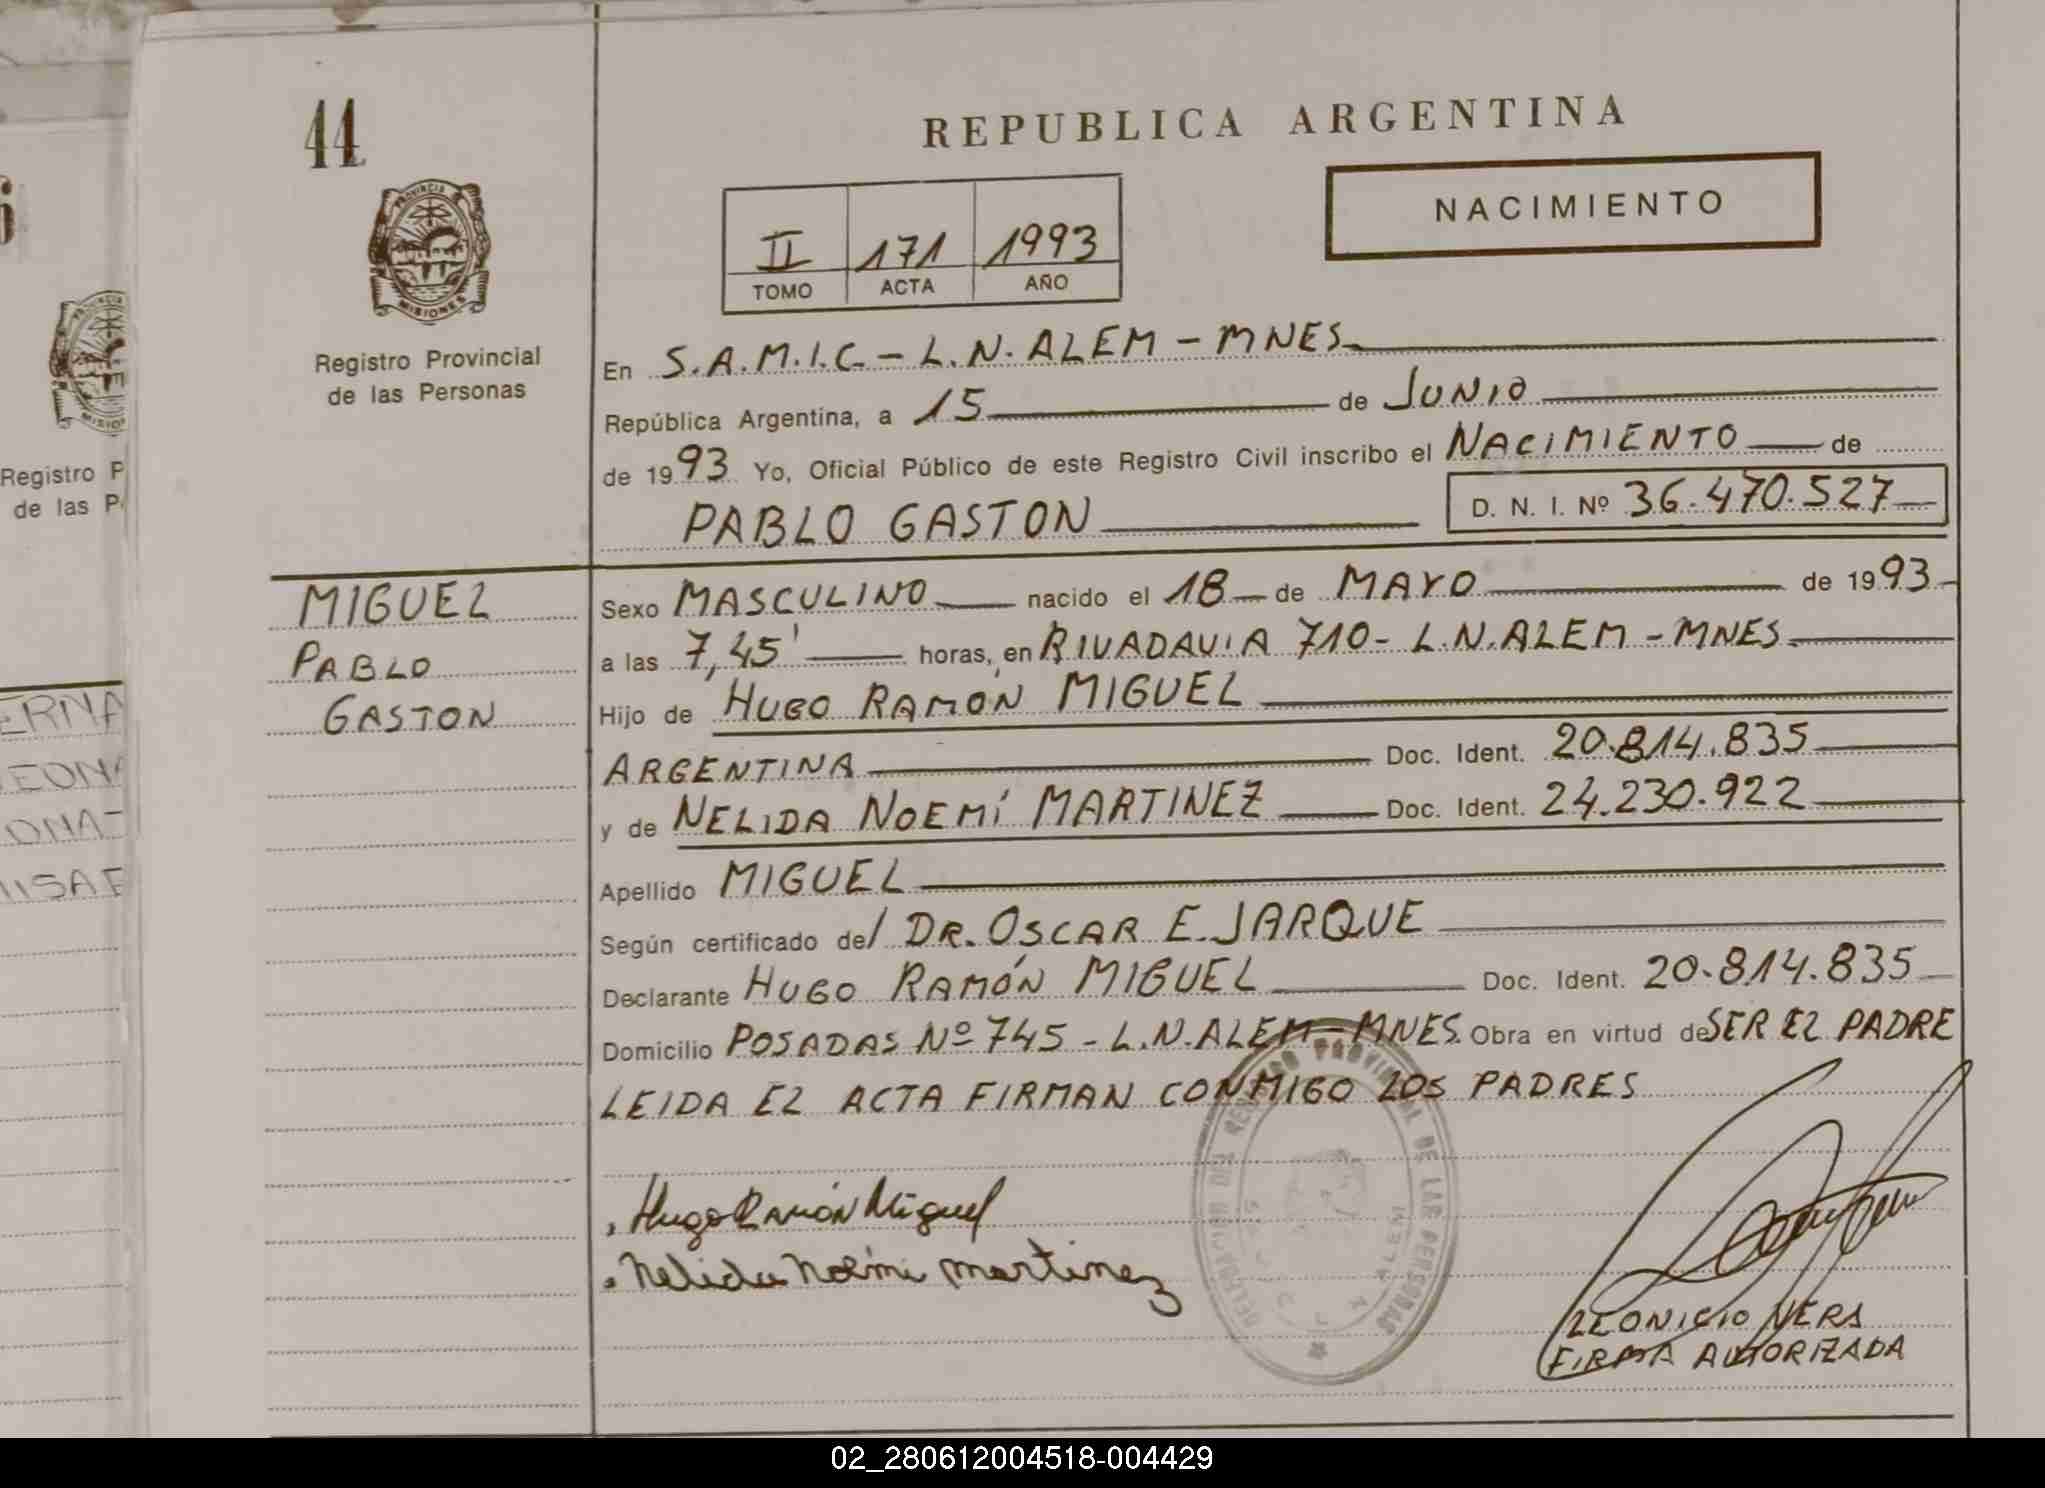 44
REPUBLICA ARGENTINA
NACIMIENTO
PROVINCIA
MISIONES
Registro Provincial
de las Personas
II 171 1993
TOMO ACTA AÑO
En S.A.M.I.C - L.N. ALEM - MNES
República Argentina, a 15 de JUNIO
de 1993 Yo, Oficial Público de este Registro Civil inscribo el NACIMIENTO de
PABLO GASTON D. N. I. Nº 36.470.527
MIGUEL
PABLO
GASTON
Sexo MASCULINO nacido el 18 de MAYO de 1993
a las 7,45' horas, en RIVADAVIA 710 - L.N. ALEM - MNES
Hijo de HUGO RAMÓN MIGUEL
ARGENTINA Doc. Ident. 20.814.835
y de NELIDA NOEMÍ MARTINEZ Doc. Ident. 24.230.922
Apellido MIGUEL
Según certificado del DR. OSCAR E. JARQUE
Declarante HUGO RAMÓN MIGUEL Doc. Ident. 20.814.835
Domicilio POSADAS Nº 745 - L.N. ALEM - MNES. Obra en virtud de SER EL PADRE
LEIDA EL ACTA FIRMAN CONMIGO LOS PADRES
Hugo Ramón Miguel
Nelida Noemi Martinez
DELEGACION DEL REGISTRO PROVINCIAL DE LAS PERSONAS
ALEM
FIRMA AUTORIZADA
Registro P
de las P
MISION
ERNA
EONA
02_280612004518-004429